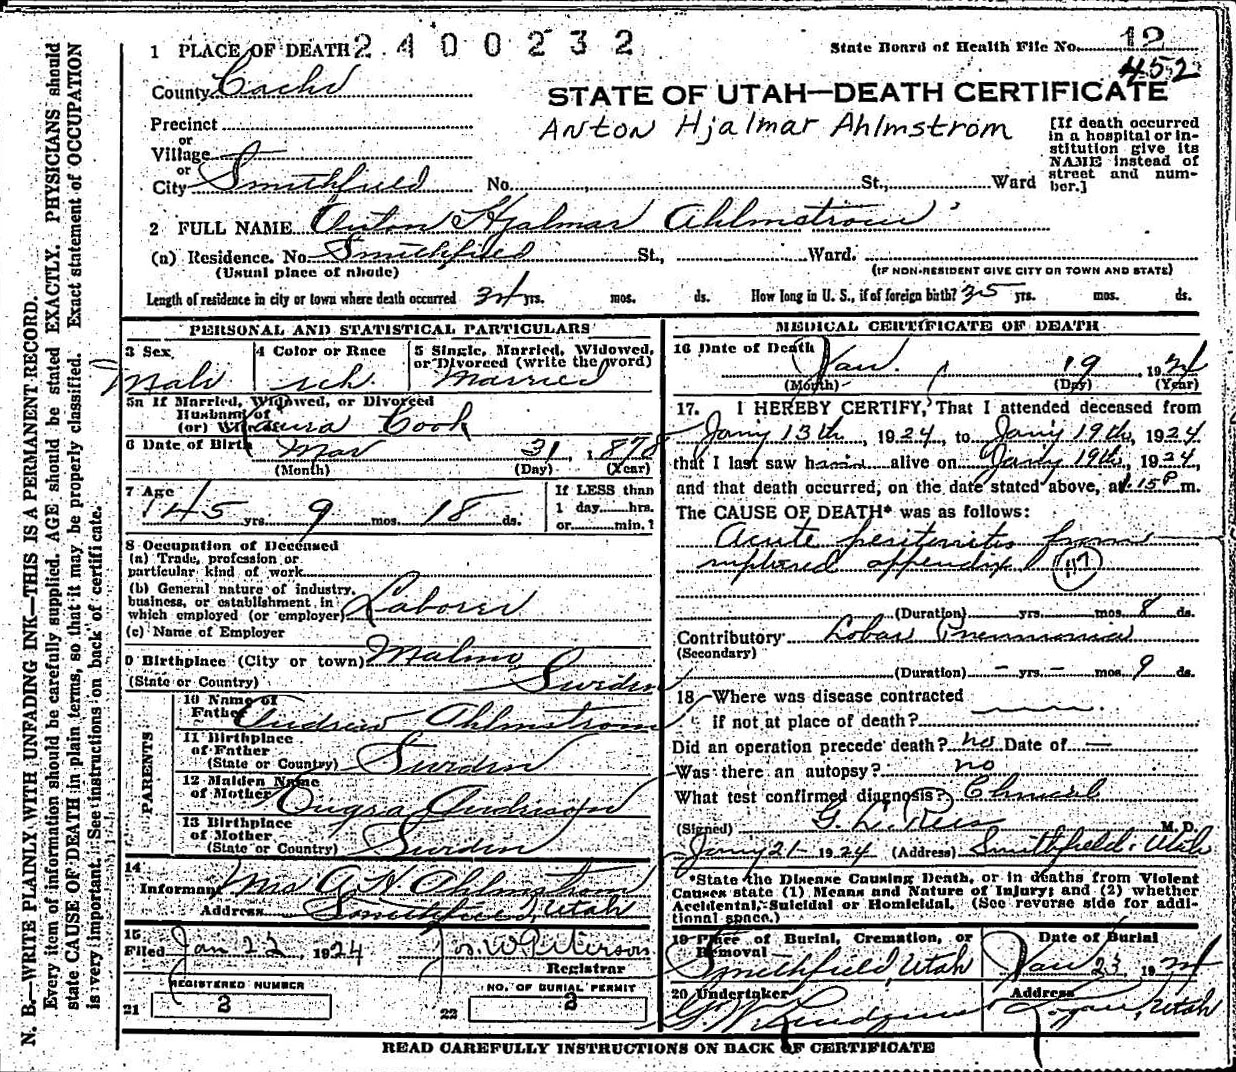 N. B.—WRITE PLAINLY WITH UNFADING INK—THIS IS A PERMANENT RECORD.
Every item of information should be carefully supplied. AGE should be stated EXACTLY. PHYSICIANS should
state CAUSE OF DEATH in plain terms, so that it may be properly classified. Exact statement of OCCUPATION
is very important. See instructions on back of certificate.
1 PLACE OF DEATH 2400232
State Board of Health File No. 12
452
County Cache
STATE OF UTAH—DEATH CERTIFICATE
Anton Hjalmar Ahlmstrom
Precinct
or
Village
or
City Smithfield No. St., Ward
[If death occurred
in a hospital or in-
stitution give its
NAME instead of
street and num-
ber.]
2 FULL NAME Anton Hjalmar Ahlmstrom
(a) Residence. No. Smithfield St., Ward.
(Usual place of abode) (IF NON-RESIDENT GIVE CITY OR TOWN AND STATE)
Length of residence in city or town where death occurred 34 yrs. mos. ds. How long in U. S., if of foreign birth? 35 yrs. mos. ds.
PERSONAL AND STATISTICAL PARTICULARS
3 Sex 4 Color or Race 5 Single, Married, Widowed,
or Divorced (write the word)
Male Married
5a If Married, Widowed, or Divorced
Husband of
(or) Wife of Laura Cook
6 Date of Birth Mar 31, 1878
(Month) (Day) (Year)
7 Age 45 yrs. 9 mos. 18 ds.
If LESS than
1 day hrs.
or min.?
8 Occupation of Deceased
(a) Trade, profession or
particular kind of work
(b) General nature of industry,
business, or establishment in
which employed (or employer) Laborer
(c) Name of Employer
9 Birthplace (City or town) Malmo
(State or Country) Sweden
PARENTS
10 Name of
Father Andrew Ahlmstrom
11 Birthplace
of Father
(State or Country) Sweden
12 Maiden Name
of Mother
13 Birthplace
of Mother
(State or Country) Sweden
14
Informant Mrs A. H. Ahlmstrom
Address Smithfield, Utah
15
Filed Jan 22, 1924 Jos. W. Peterson
Registrar
REGISTERED NUMBER
21 3
NO. OF BURIAL PERMIT
22 3
MEDICAL CERTIFICATE OF DEATH
16 Date of Death Jan. 19 1924
(Month) (Day) (Year)
17. I HEREBY CERTIFY, That I attended deceased from
Jan'y 13th, 1924, to Jan'y 19th, 1924
that I last saw him alive on Jan'y 19th, 1924,
and that death occurred, on the date stated above, at 1.15 P m.
The CAUSE OF DEATH* was as follows:
Acute peritonitis from
ruptured appendix 117
(Duration) yrs. mos. 8 ds.
Contributory Lobar Pneumonia
(Secondary)
(Duration) — yrs. — mos. 9 ds.
18 Where was disease contracted
if not at place of death?
Did an operation precede death? no Date of —
Was there an autopsy? no
What test confirmed diagnosis? Clinical
(Signed) G. L. Rees M. D.
Jany 21 1924 (Address) Smithfield, Utah
*State the Disease Causing Death, or in deaths from Violent
Causes state (1) Means and Nature of Injury; and (2) whether
Accidental, Suicidal or Homicidal. (See reverse side for addi-
tional space.)
19 Place of Burial, Cremation, or
Removal
Smithfield, Utah
Date of Burial
Jan 23, 1924
20 Undertaker
Address
Logan, Utah
READ CAREFULLY INSTRUCTIONS ON BACK OF CERTIFICATE